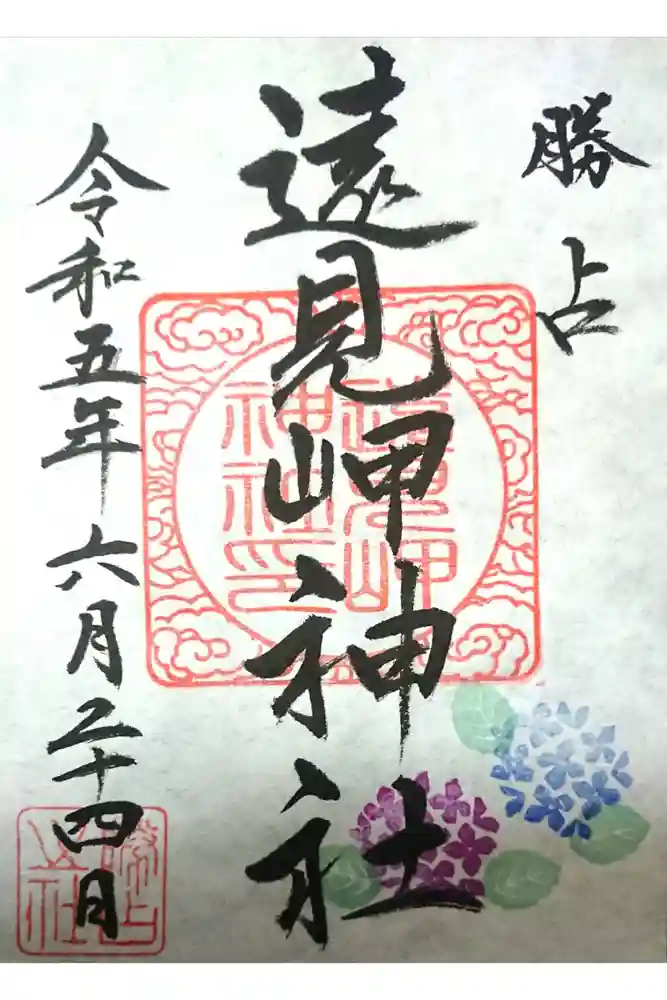 勝占
遠見岬神社
令和五年六月二十四日
遠見岬
神社印